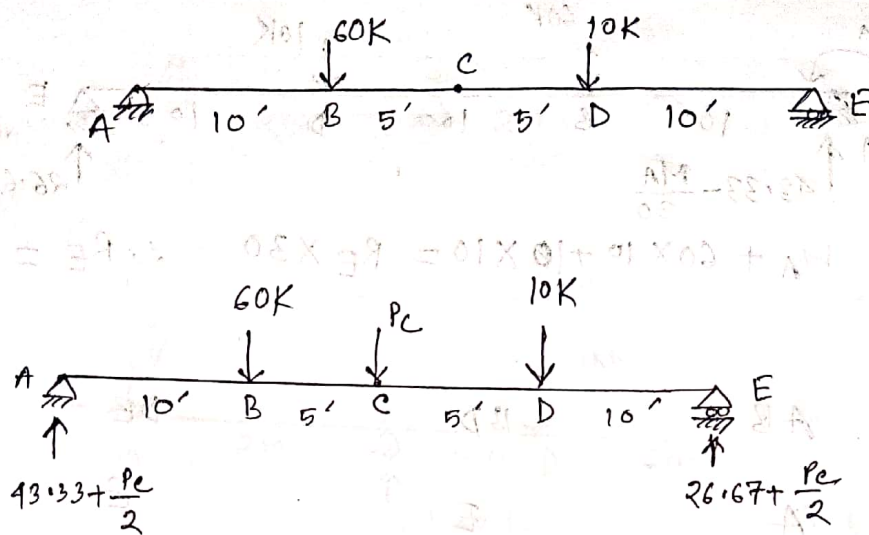 60K 10K
C
A 10′ B 5′ 5′ D 10′ E
60K Pc 10K
A 10′ B 5′ C 5′ D 10′ E
43.33+Pc/2 26.67+Pc/2